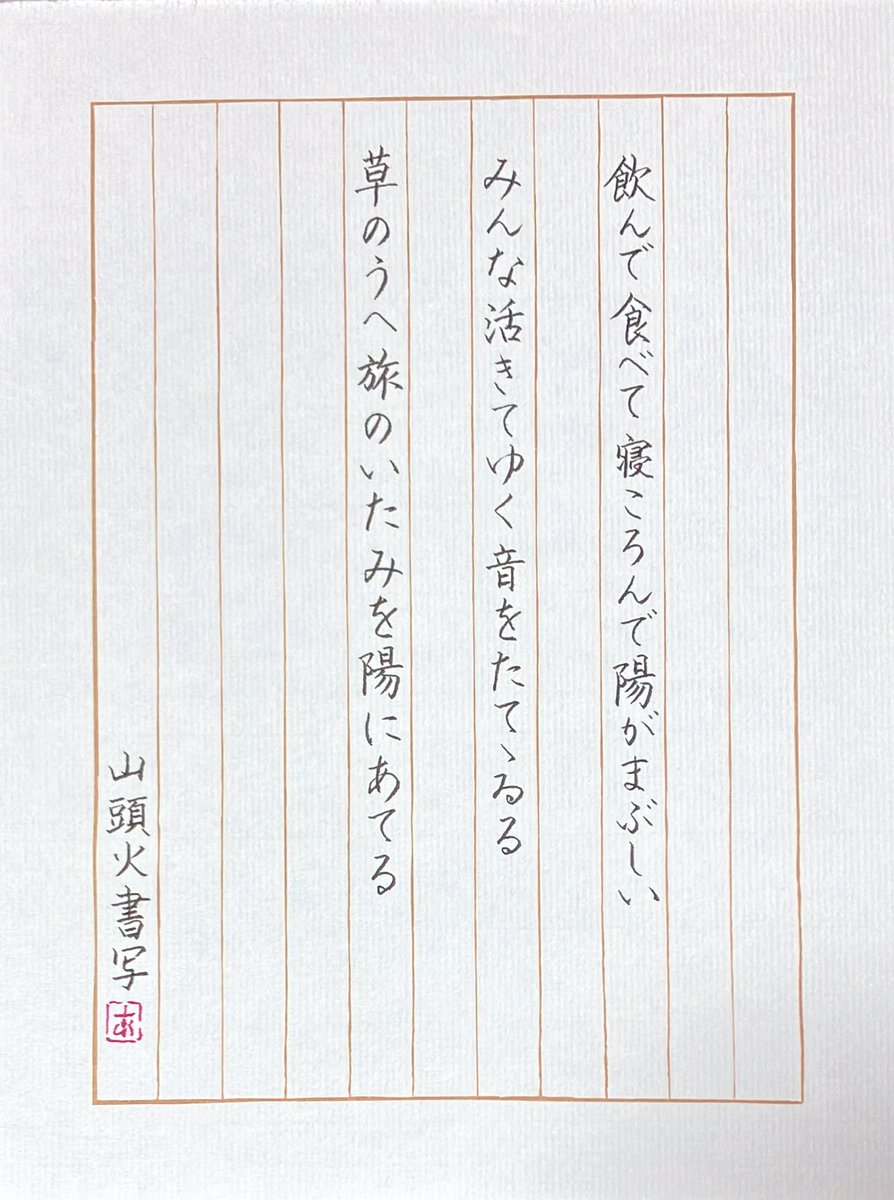 飲んで食べて寝ころんで陽がまぶしい
みんな活きてゆく音をたてゝゐる
草のうへ旅のいたみを陽にあてる
山頭火書写
あ